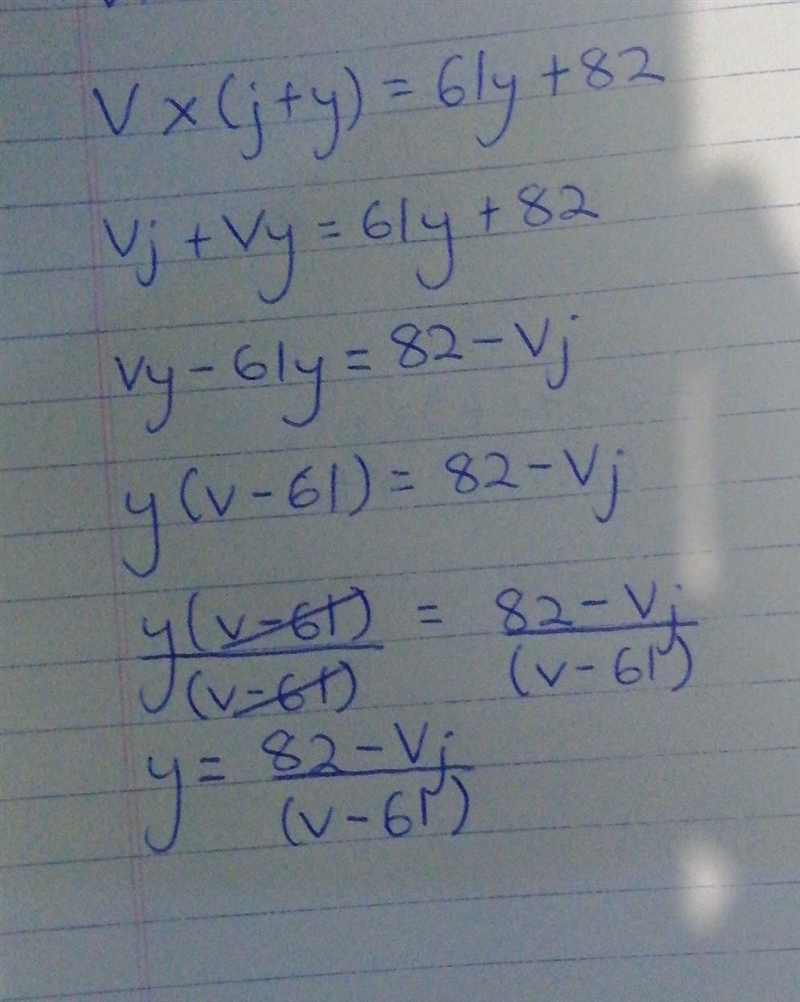 V × (j + y) = 61y + 82
Vj + Vy = 61y + 82
Vy - 61y = 82 - Vj
y (v - 61) = 82 - Vj
y(v - 61)/(v - 61) = 82 - Vj/(v - 61)
y = 82 - Vj/(v - 61)